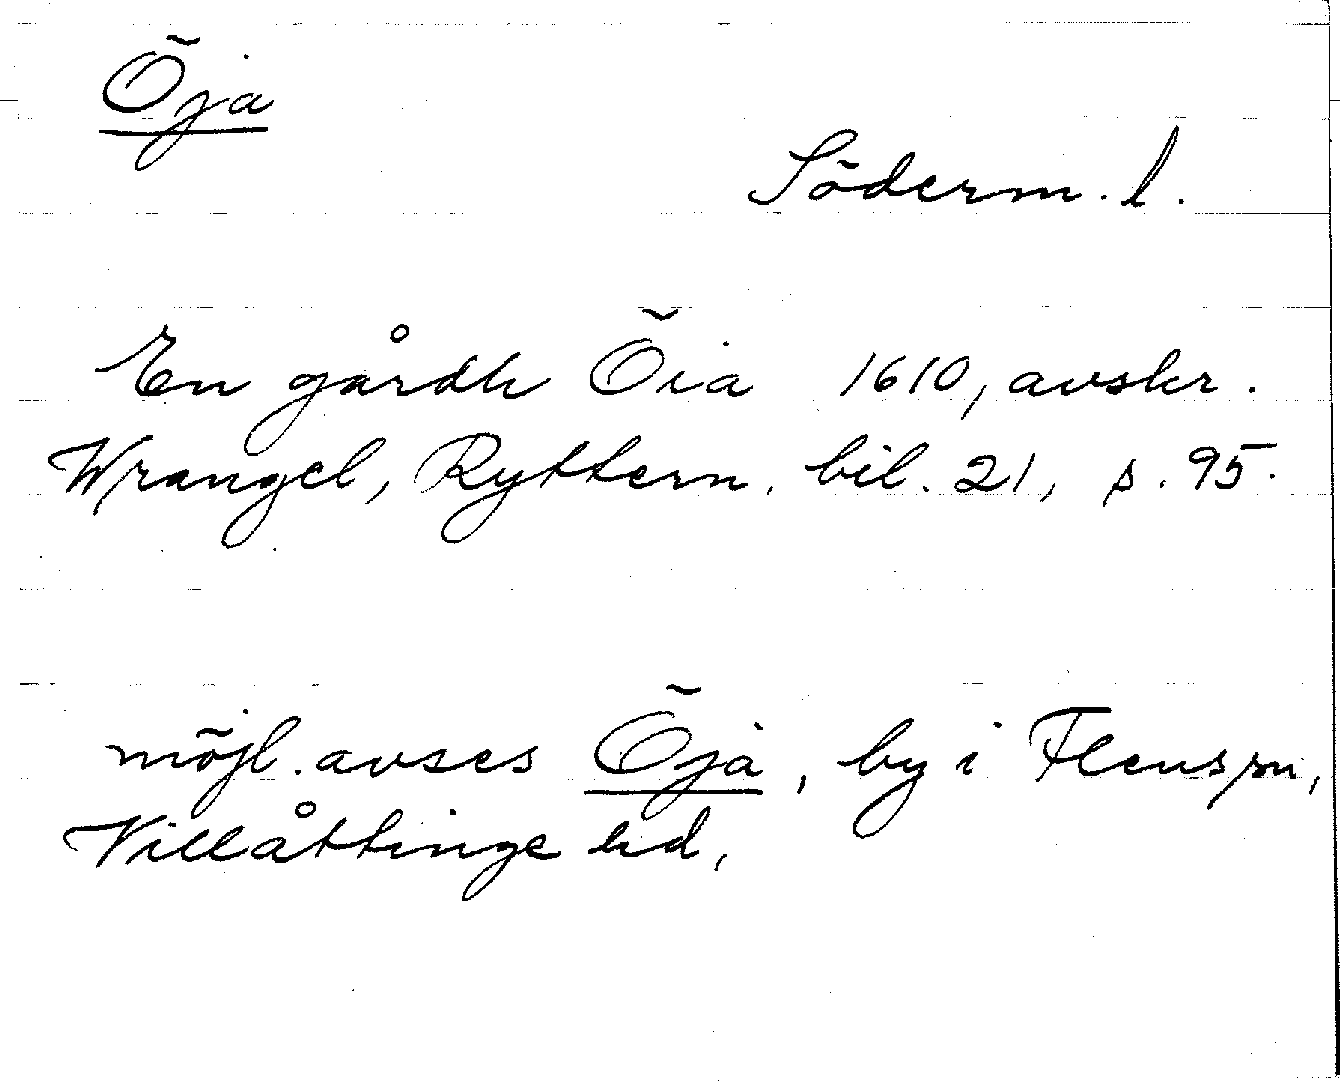 Öja
Söderm. l.
En gårdh Öia 1610, avskr.
Wrangel, Ryttern, bil. 21, s. 95.
möjl. avses Öja, by i Flens sn,
Villåttinge hd,